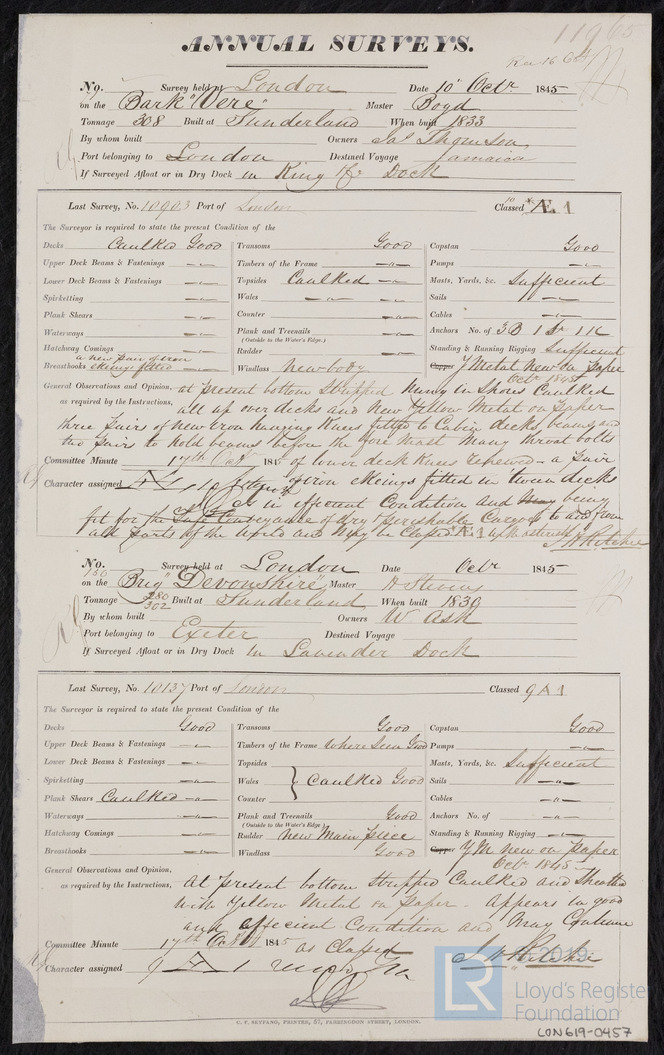 11965
Rec 16 Oct
ANNUAL SURVEYS.
No. Survey held at London Date 10 Octr. 1845
on the Bark "Vere" Master Boyd
Tonnage 308 Built at Sunderland When built 1833
By whom built Owners Jas Thomson
Port belonging to London Destined Voyage Jamaica
If Surveyed Afloat or in Dry Dock in King &c Dock
Last Survey, No. 10903 Port of London Classed Æ 1
The Surveyor is required to state the present Condition of the
Decks Caulked Good Transoms Good Capstan Good
Upper Deck Beams & Fastenings —"— Timbers of the Frame —"— Pumps —"—
Lower Deck Beams & Fastenings —"— Topsides Caulked —"— Masts, Yards, &c. Sufficient
Spirketting —"— Wales —"— —"— Sails —"—
Plank Shears —"— Counter —"— Cables —"—
Waterways —"— Plank and Treenails —"— Anchors No. of 3B 1 St 1 K
(Outside to the Water's Edge.)
Hatchway Comings —"— Rudder —"— Standing & Running Rigging Sufficient
a new pair of iron
Breasthooks ekeings fitted —"— Windlass new body Copper Y Metal New on Paper
Octr 1845
General Observations and Opinion, at present bottom stripped hung in Shores Caulked
as required by the Instructions, all up over decks and New Yellow Metal on Paper
three pairs of new iron hanging Knees fitted to Cabin decks, beams and
two pairs to hold beams before the fore Mast Many throat bolts
Committee Minute 17th Octr 1845 of lower deck Knees renewed - a pair
Character assigned of iron ekeings fitted in tween decks
Is in efficient Condition and May being
fit for the Safe Conveyance of dry & perishable Cargoes to and from
all parts of the World and May be Classed Æ 1
J H Ritchie
No. 130 Survey held at London Date Octr 1845
on the Brig "Devonshire" Master H Stevens
Tonnage 280 302 Built at Sunderland When built 1830
By whom built Owners W Ash
Port belonging to Exeter Destined Voyage
If Surveyed Afloat or in Dry Dock In Lavender Dock
Last Survey, No. 10137 Port of London Classed 9 A 1
The Surveyor is required to state the present Condition of the
Decks Good Transoms Good Capstan Good
Upper Deck Beams & Fastenings —"— Timbers of the Frame where seen Good Pumps —"—
Lower Deck Beams & Fastenings —"— Topsides Masts, Yards, &c. Sufficient
Spirketting —"— Wales } Caulked Good Sails —"—
Plank Shears Caulked —"— Counter Cables —"—
Waterways —"— Plank and Treenails Good Anchors No. of —"—
(Outside to the Water's Edge)
Hatchway Comings —"— Rudder New Main piece Standing & Running Rigging —"—
Breasthooks —"— Windlass Good Copper YM new on Paper
Octr 1845
General Observations and Opinion,
as required by the Instructions, At present bottom Stripped Caulked and Sheathed
with Yellow Metal on Paper - appears in good
and efficient Condition and May Continue
Committee Minute 17th Octr 1845 as Classed
Character assigned 9 A 1
J H Ritchie
© 2019
LR
Lloyd's Register
Foundation
U. F. SEYFANG, PRINTER, 57, FARRINGDON STREET, LONDON.
LON619-0457